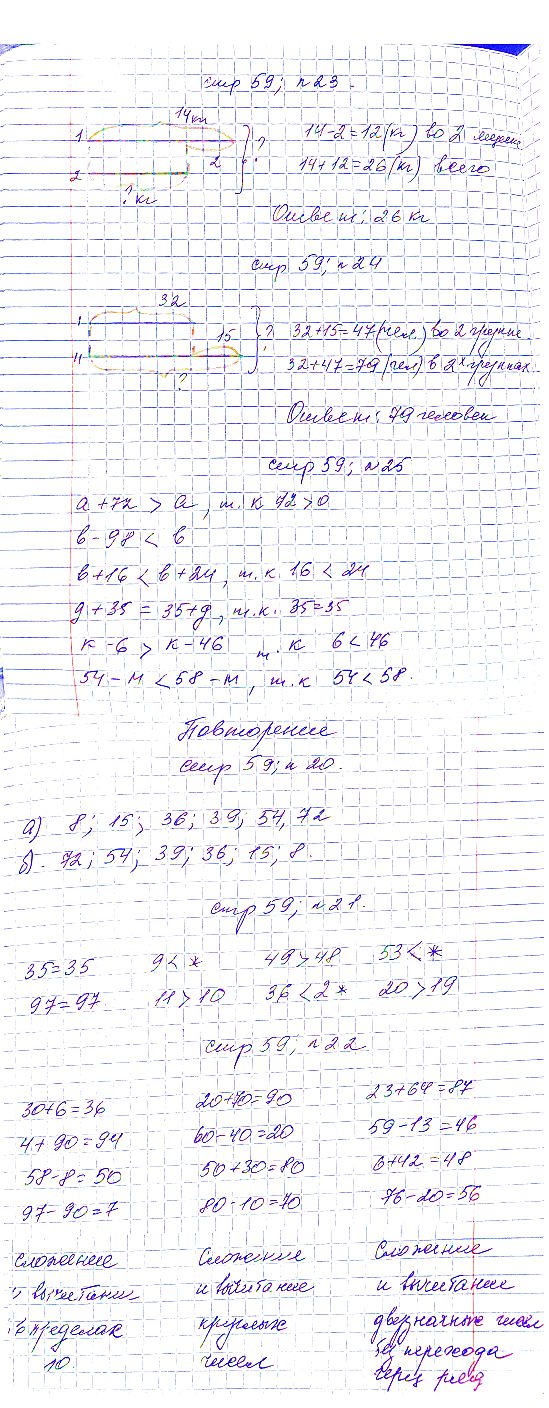 стр 59; n 23.
14 кг
1
14-2=12(кг) во 2
?
2
2
14+12=26(кг) всего
? кг
Ответ: 26 кг
стр 59; n 24
32
I
15
?
32+15=47(чел.) во 2 группе.
II
32+47=79(чел) в 2х группах.
?
Ответ: 79 человек
стр 59; n 25
а+72 > а, т. к 72>0
в-98 < в
в+16 < в+24, т.к. 16 < 24
д+35 = 35+д, т.к. 35=35
к-6 > к-46 т. к 6<46
54-м <58-м, т.к 54<58.
Повторение
стр 59; n 20.
а) 8; 15; 36; 39; 54, 72
б). 72; 54; 39; 36; 15; 8.
стр 59; n 21.
35=35 9< * 49>48 53<*
97=97 11>10 36<2* 20>19
стр 59; n 22
30+6=36 20+70=90 23+64=87
4+90=94 60-40=20 59-13=46
58-8=50 50+30=80 6+42=48
97-90=7 80-10=70 76-20=56
Сложение Сложение Сложение
и вычитание и вычитание
в пределах круглых двузначных чисел
10 чисел без перехода
через ряд